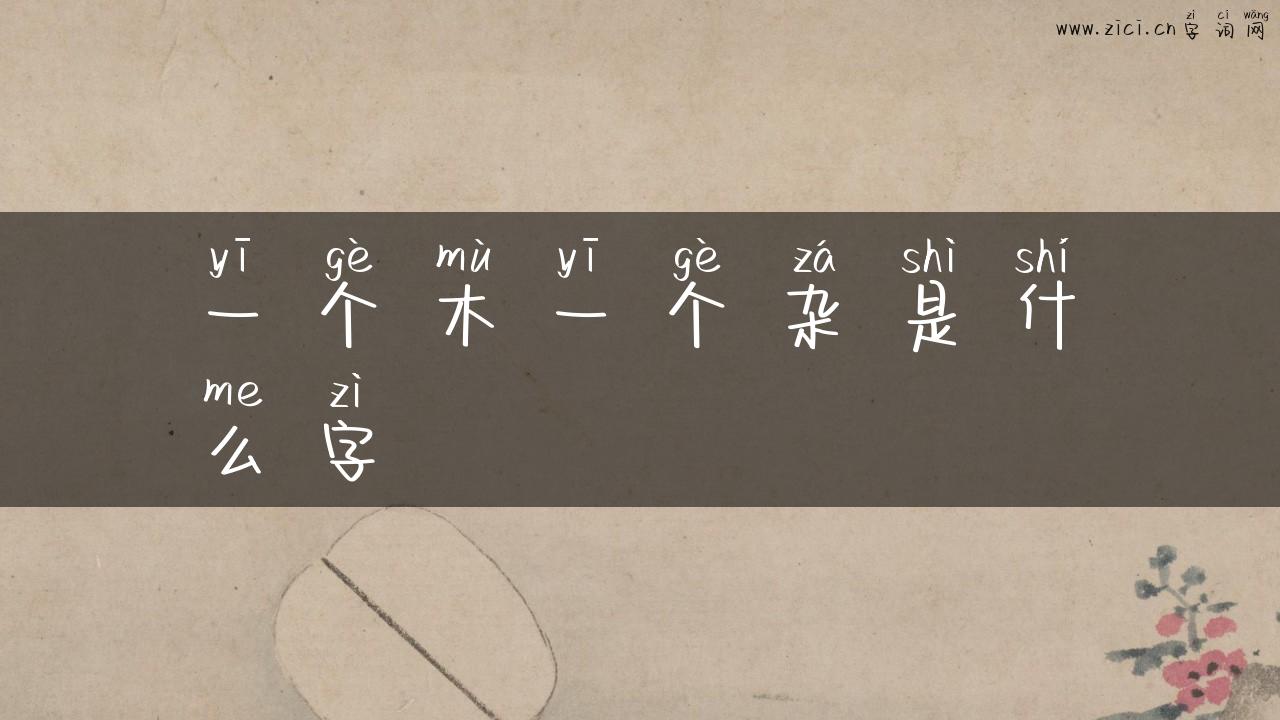 zì cí wǎng
www.zici.cn字词网
yī gè mù yī gè zá shì shí
一个木一个杂是什
me zì
么字